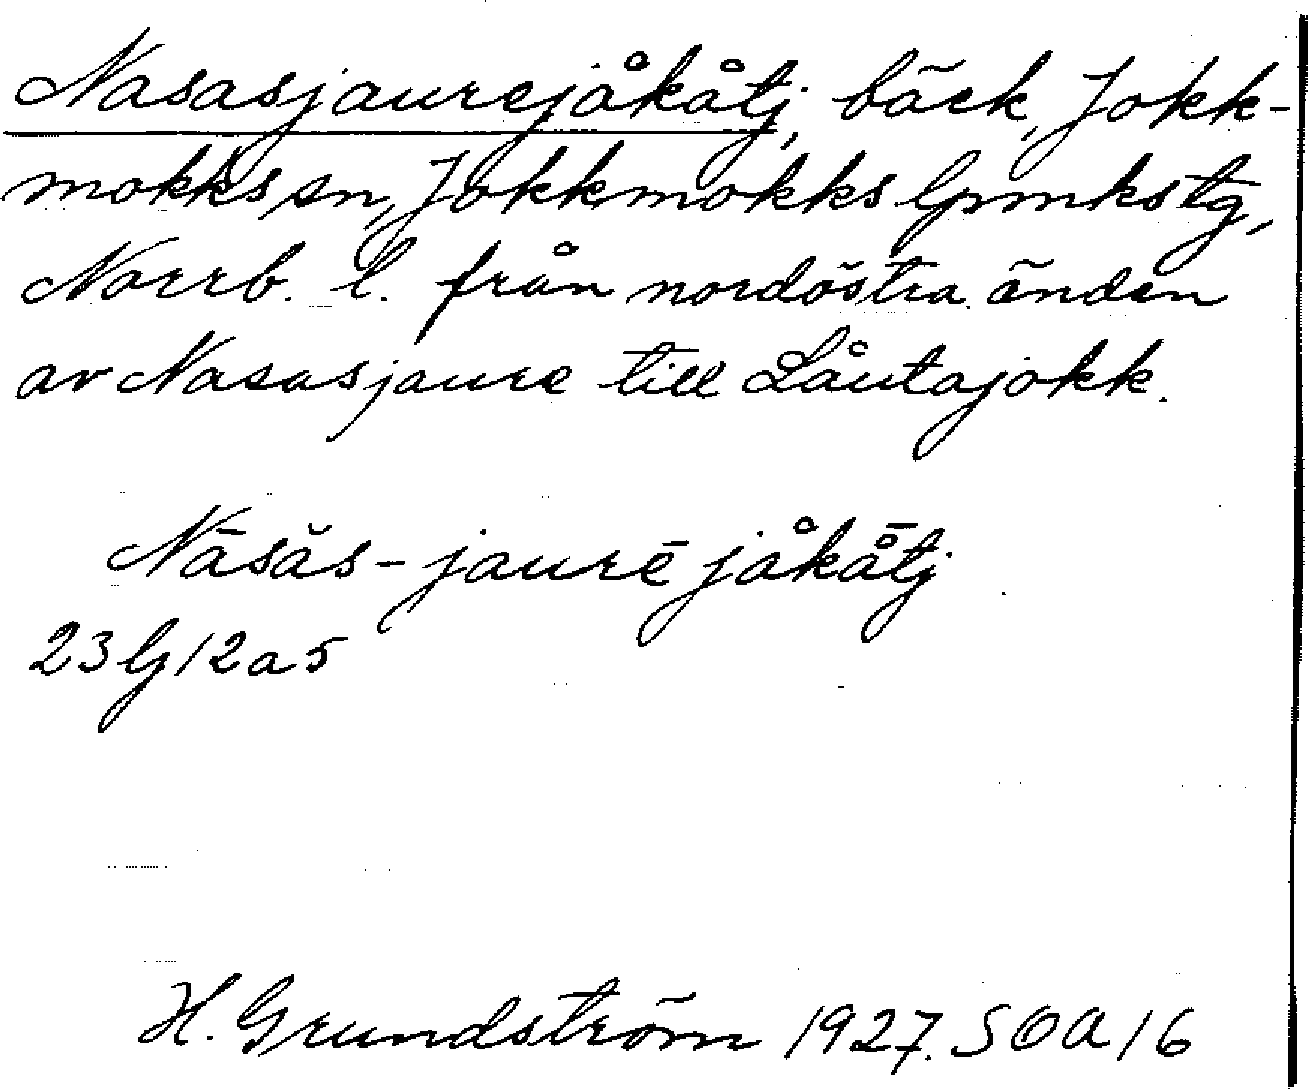 Nasasjaurejåkåtj, bäck, Jokk-
mokks sn, Jokkmokks lpmkstg,
Norrb. l. från nordöstra änden
av Nasasjaure till Låutajokk.
Nāsăs-jaurē jåkå̄tj
23G12a5
H. Grundström 1927. SOA16